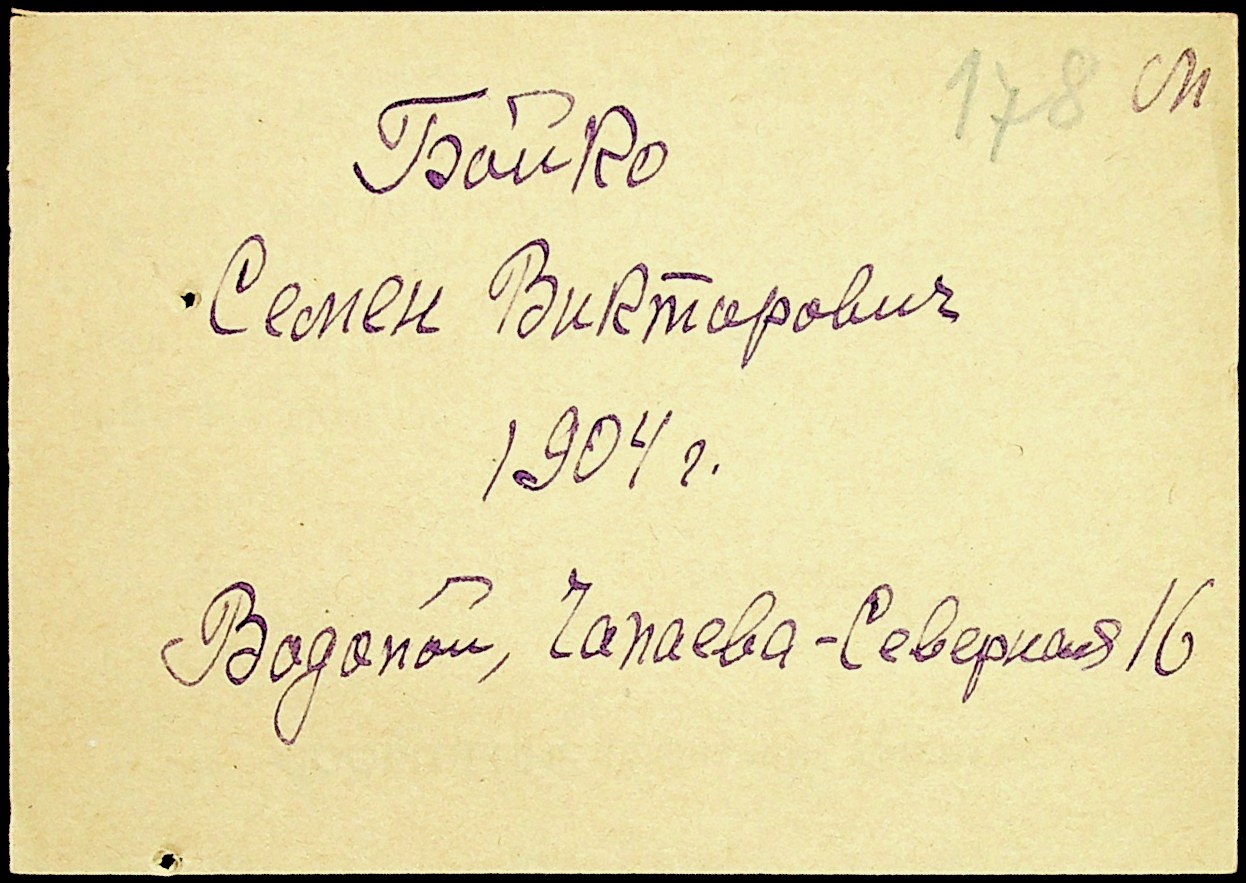 178 М
Бойко
Семен Викторович
1904 г.
Водопой, Чапаева-Северная 16